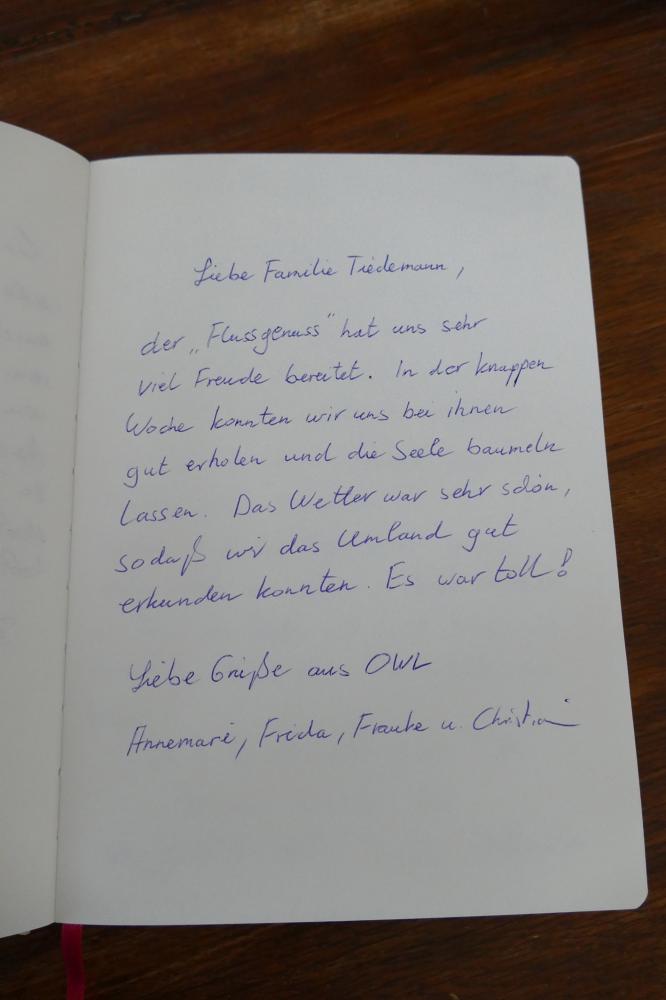 Liebe Familie Tiedemann,
der „Flussgenuss" hat uns sehr
viel Freude bereitet. In der knappen
Woche konnten wir uns bei ihnen
gut erholen und die Seele baumeln
lassen. Das Wetter war sehr schön,
sodaß wir das Umland gut
erkunden konnten. Es war toll!
Liebe Grüße aus OWL
Annemarie, Frida, Frauke u. Christian